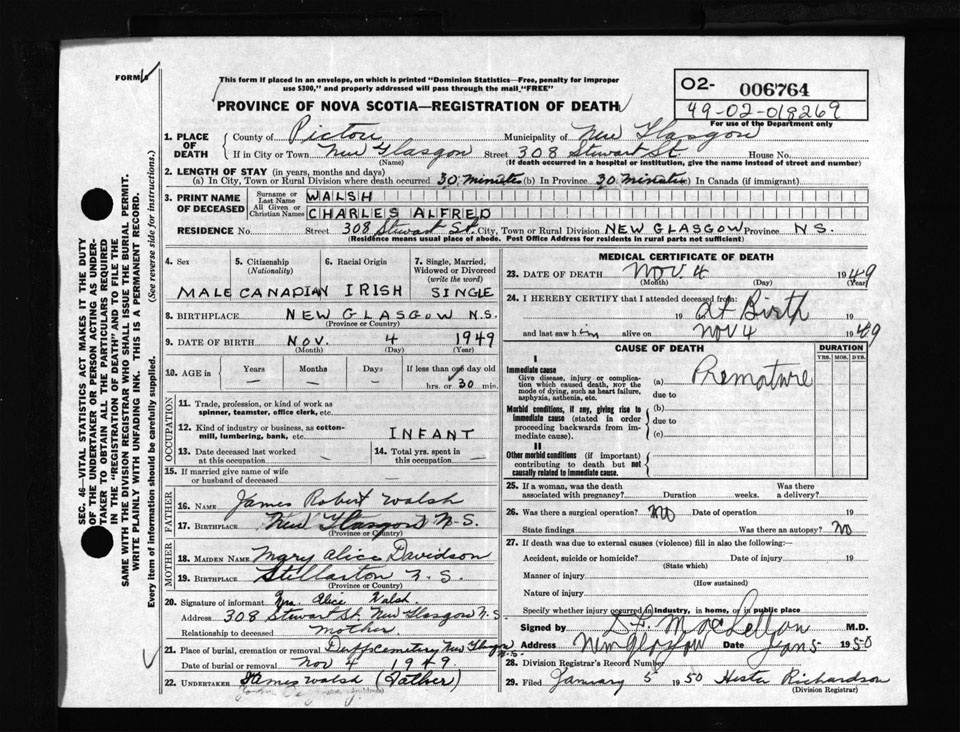 FORM 6
This form if placed in an envelope, on which is printed "Dominion Statistics—Free, penalty for improper
use $300," and properly addressed will pass through the mail "FREE"
02- 006764
49-02-018269
For use of the Department only
PROVINCE OF NOVA SCOTIA—REGISTRATION OF DEATH
1. PLACE OF DEATH County of Pictou Municipality of New Glasgow
If in City or Town New Glasgow Street 308 Stewart St. House No.
(Name) (If death occurred in a hospital or institution, give the name instead of street and number)
2. LENGTH OF STAY (in years, months and days)
(a) In City, Town or Rural Division where death occurred 30 minutes (b) In Province 30 minutes (c) In Canada (if immigrant)
3. PRINT NAME OF DECEASED Surname or Last Name WALSH
All Given or Christian Names CHARLES ALFRED
RESIDENCE No. Street 308 Stewart St. City, Town or Rural Division NEW GLASGOW Province N.S.
(Residence means usual place of abode. Post Office Address for residents in rural parts not sufficient)
4. Sex 5. Citizenship (Nationality) 6. Racial Origin 7. Single, Married, Widowed or Divorced (write the word)
MALE CANADIAN IRISH SINGLE
8. BIRTHPLACE NEW GLASGOW N.S.
(Province or Country)
9. DATE OF BIRTH NOV. 4 1949
(Month) (Day) (Year)
10. AGE in Years Months Days If less than one day old
— — — hrs. or 30 min.
OCCUPATION
11. Trade, profession, or kind of work as spinner, teamster, office clerk, etc.
12. Kind of industry or business, as cotton-mill, lumbering, bank, etc. INFANT
13. Date deceased last worked at this occupation — 14. Total yrs. spent in this occupation —
15. If married give name of wife or husband of deceased —
FATHER
16. NAME James Robert Walsh
17. BIRTHPLACE New Glasgow N.S.
(Province or Country)
MOTHER
18. MAIDEN NAME Mary Alice Davidson
19. BIRTHPLACE Stellarton N.S.
(Province or Country)
20. Signature of informant Mrs. Alice Walsh.
Address 308 Stewart St. New Glasgow N.S
Relationship to deceased mother.
21. Place of burial, cremation or removal Duff Cemetery New Glasgow N.S.
Date of burial or removal Nov 4 1949.
22. UNDERTAKER James Walsh (Father)
MEDICAL CERTIFICATE OF DEATH
23. DATE OF DEATH Nov. 4 1949
(Month) (Day) (Year)
24. I HEREBY CERTIFY that I attended deceased from:
19 at Birth
and last saw him alive on Nov 4 1949
CAUSE OF DEATH DURATION
YRS. MOS. DYS.
I
Immediate cause
Give disease, injury or complication which caused death, not the mode of dying, such as heart failure, asphyxia, asthenia, etc.
(a) Premature
due to
Morbid conditions, if any, giving rise to immediate cause (stated in order proceeding backwards from immediate cause).
(b)
due to
(c)
II
Other morbid conditions (if important) contributing to death but not causally related to immediate cause.
25. If a woman, was the death associated with pregnancy? Duration weeks. Was there a delivery?
26. Was there a surgical operation? No Date of operation 19
State findings Was there an autopsy? No
27. If death was due to external causes (violence) fill in also the following:
Accident, suicide or homicide? Date of injury 19
(State which)
Manner of injury
(How sustained)
Nature of injury
Specify whether injury occurred in industry, in home, or in public place
Signed by D.F. MacLellan M.D.
Address New Glasgow Date Jan 5 1950
28. Division Registrar's Record Number
29. Filed January 5 1950 Hester Richardson
(Division Registrar)
SEC. 46—VITAL STATISTICS ACT MAKES IT THE DUTY
OF THE UNDERTAKER OR PERSON ACTING AS UNDER-
TAKER TO OBTAIN ALL THE PARTICULARS REQUIRED
IN THE "REGISTRATION OF DEATH" AND TO FILE THE
SAME WITH THE DIVISION REGISTRAR WHO SHALL ISSUE THE BURIAL PERMIT.
WRITE PLAINLY WITH UNFADING INK. THIS IS A PERMANENT RECORD.
Every item of information should be carefully supplied. (See reverse side for instructions.)